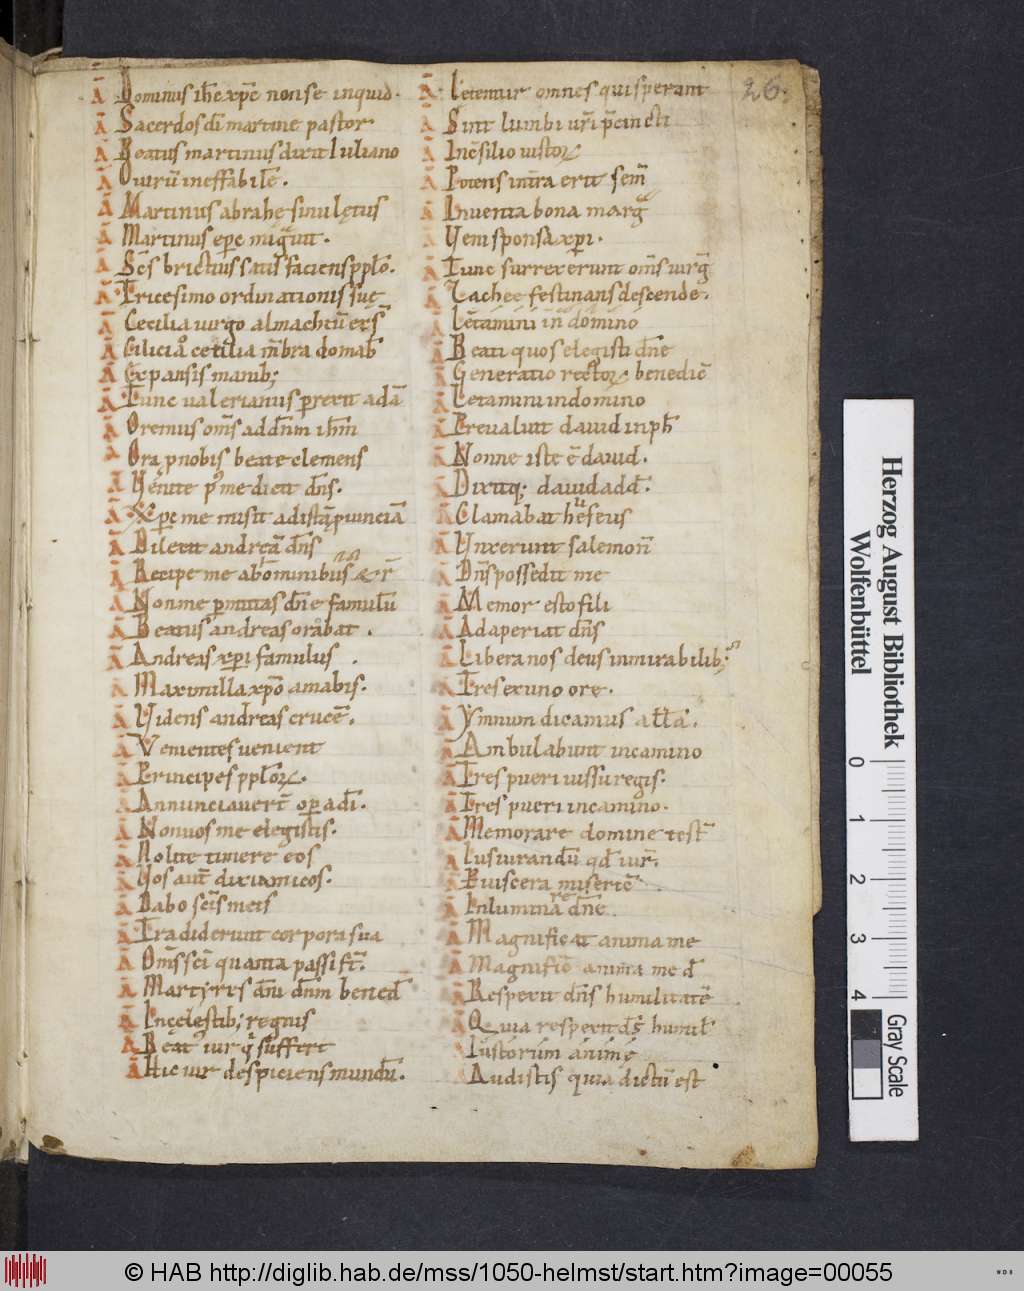 A Dominus ih̄e xp̄e non se inquid.
A Sacerdos dī martine pastor
A Beatus martinus dixit Iuliano
A O uirū ineffabilē.
A Martinus abrahę sinu lętus
A Martinus ep̄c migᵃuit.
A Sc̄s brictius satisfaciens pplō.
A Tricesimo ordinationis suę
A Cecilia uirgo almachiū exs̄
A Ciliciᵒ cecilia m̄bra domab̄
A Expansis manib;
A Tunc ualerianus prexit ad ā
A Oremus om̄s ad dn̄m ih̄m
A Ora p nobis beate clemens
A Uenite pᵗ me dicit dn̄s.
A Xp̄c me misit ad istā puinciā
A Dilexit andreā dn̄s
A Recipe me ab hominibus & r̄
A Non me pmittas dn̄e famulū
A Beatus andreas orabat.
A Andreas xp̄i famulus.
A Maximilla xp̄o amabis.
A Uidens andreas crucē.
A Uenientes uenient
A Principes pplōꝝ.
A Annunciauer̄t opa dī.
A Non uos me elegistis.
A Nolite timere eos
A Uos aut̄ dixi amicos.
A Dabo sc̄is meis
A Tradiderunt corpora sua
A Om̄s sc̄i quanta passi st̄.
A Martyres dn̄i dn̄m bened̄
A In cęlestib; regnis
A Beatᵒ uir qⁱ suffert
A Hic uir despiciens mundū.
A Letentur omnes qui sperant
A Sint lumbi ur̄i p̄cincti
A In c̄silio iustoꝝ
A Potens in tr̄a erit sem̄
A Inuenta bona margᵃ
A Ueni sponsa xp̄i.
A Tunc surrexerunt om̄s uirḡ
A Zachee festinans descende.
A Letamini in domino
A Beati quos elegisti dn̄e
A Generatio rectoꝝ benedic̄
A Letamini in domino
A Preualuit dauid in ph̄
A Nonne iste ē dauid.
A Dixitq; dauid ad d̄.
A Clamabat heliseus
A Unxerunt salemon̄
A Dn̄s possedit me
A Memor esto fili
A Adaperiat dn̄s
A Libera nos deus in mirabilib;
A Tres ex uno ore.
A Ymnum dicamus all̄a.
A Ambulabunt in camino
A Tres pueri iussu regis.
A Tres pueri in camino.
A Memorare domine test̄
A Iusiurandū qd̄ iur̄.
A P uiscera miseric̄
A Inlumina dn̄e
A Magnificat anima me
A Magnific̄ anima me d̄
A Respexit dn̄s humilitatē
A Quia respexit ds̄ humil̄
A Iustorum anime
A Audistis quia dictū est
26.
Herzog August Bibliothek
Wolfenbüttel
0 1 2 3 4
Gray Scale
© HAB http://diglib.hab.de/mss/1050-helmst/start.htm?image=00055